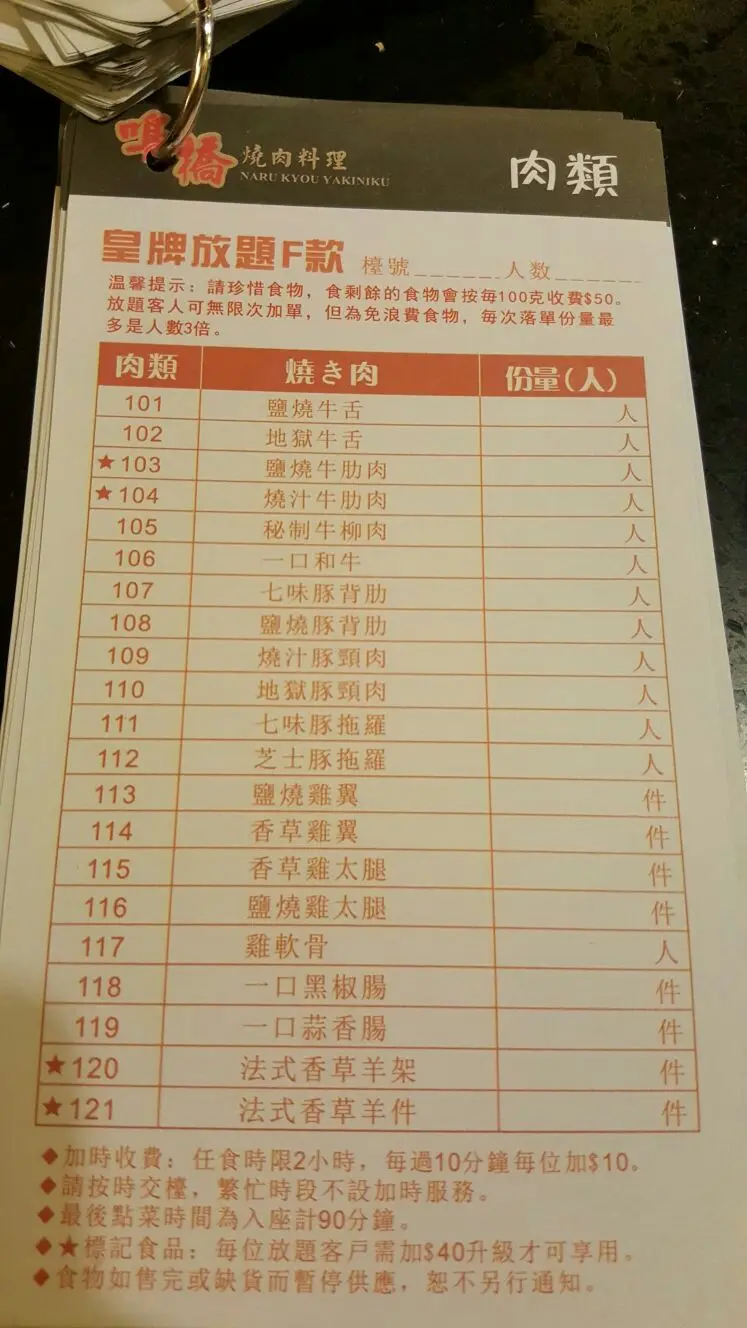 鳴橋 燒肉料理
NARU KYOU YAKINIKU
肉類
皇牌放題F款 檯號______人数______
温馨提示：請珍惜食物，食剩餘的食物會按每100克收費$50。
放題客人可無限次加單，但為免浪費食物，每次落單份量最
多是人數3倍。
肉類 燒き肉 份量(人)
101 鹽燒牛舌 人
102 地獄牛舌 人
★103 鹽燒牛肋肉 人
★104 燒汁牛肋肉 人
105 秘制牛柳肉 人
106 一口和牛 人
107 七味豚背肋 人
108 鹽燒豚背肋 人
109 燒汁豚頸肉 人
110 地獄豚頸肉 人
111 七味豚拖羅 人
112 芝士豚拖羅 人
113 鹽燒雞翼 件
114 香草雞翼 件
115 香草雞太腿 件
116 鹽燒雞太腿 件
117 雞軟骨 人
118 一口黑椒腸 件
119 一口蒜香腸 件
★120 法式香草羊架 件
★121 法式香草羊件 件
◆加時收費：任食時限2小時，每過10分鐘每位加$10。
◆請按時交檯，繁忙時段不設加時服務。
◆最後點菜時間為入座計90分鐘。
◆★標記食品：每位放題客戸需加$40升級才可享用。
◆食物如售完或缺貨而暫停供應，恕不另行通知。